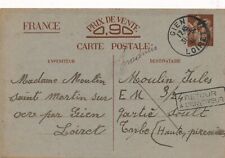 FRANCE
PRIX DE VENTE
0,90
CARTE POSTALE
GIEN
LOIRET
EXPÉDITEUR
DESTINATAIRE
Madame Moulin
Saint Martin sur
ocre par Gien
Loiret
Moulin Jules
E M
Soult
Tarbes (Hautes pyrénées
RETOUR